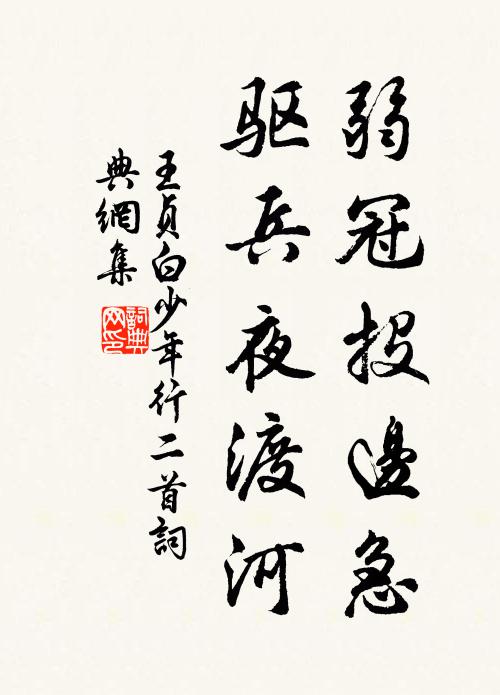 弱冠投邊急
驱兵夜渡河
王貞白少年行二首詞
典網集
詞典
网印